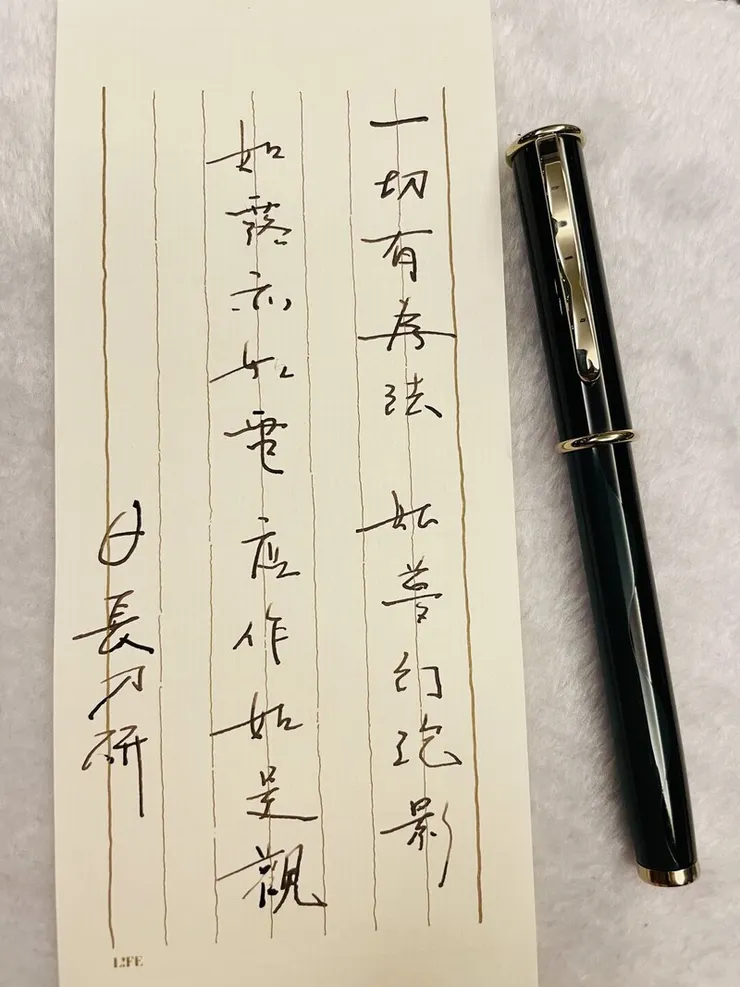 一切有為法 如夢幻泡影
如露亦如電 應作如是觀
日長刀研
LIFE